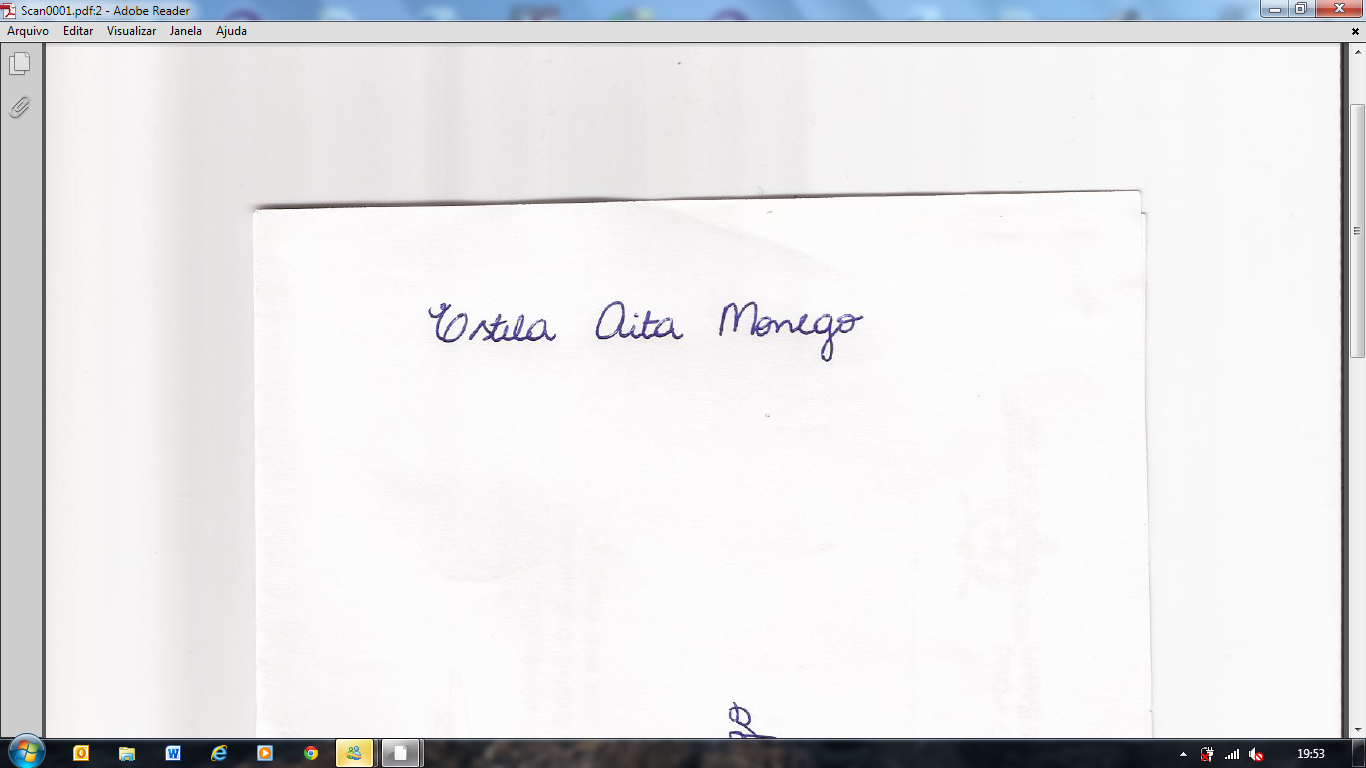 Scan0001.pdf:2 - Adobe Reader
Arquivo Editar Visualizar Janela Ajuda
Estela Aita Monego
19:53